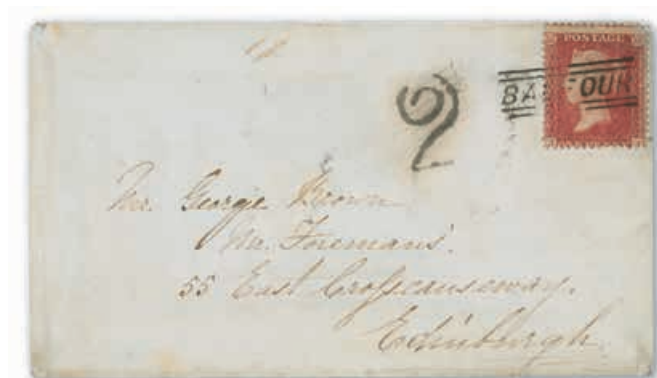 POSTAGE
BALFOUR
2
Mr. George Brown
Mr. Foremans'.
55 East Crosscauseway.
Edinburgh.